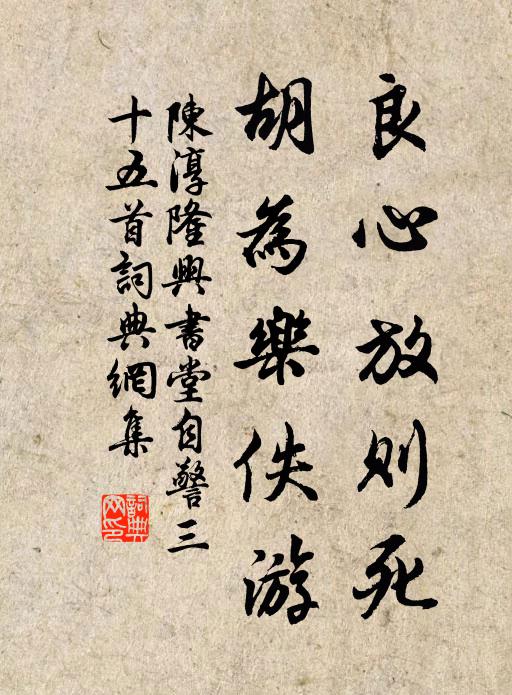 良心放则死
胡為樂佚游
陳淳隆興書堂自警三
十五首詞典網集
詞典
网印